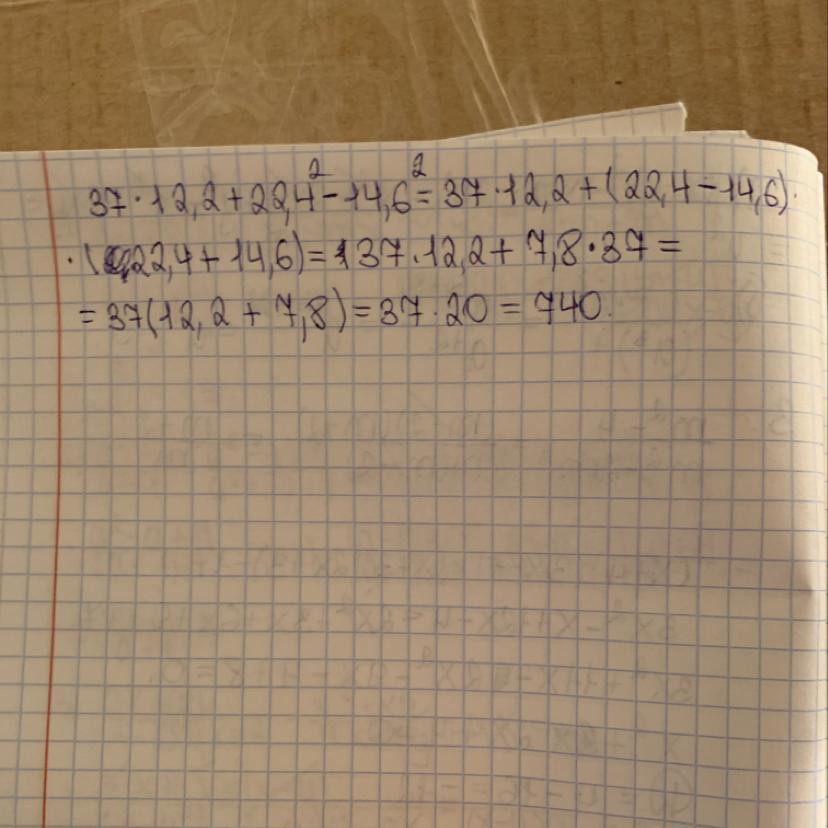 37·12,2+22,4²-14,6²=37·12,2+(22,4-14,6)·
·(22,4+14,6)=37·12,2+7,8·37=
=37(12,2+7,8)=37·20=740.